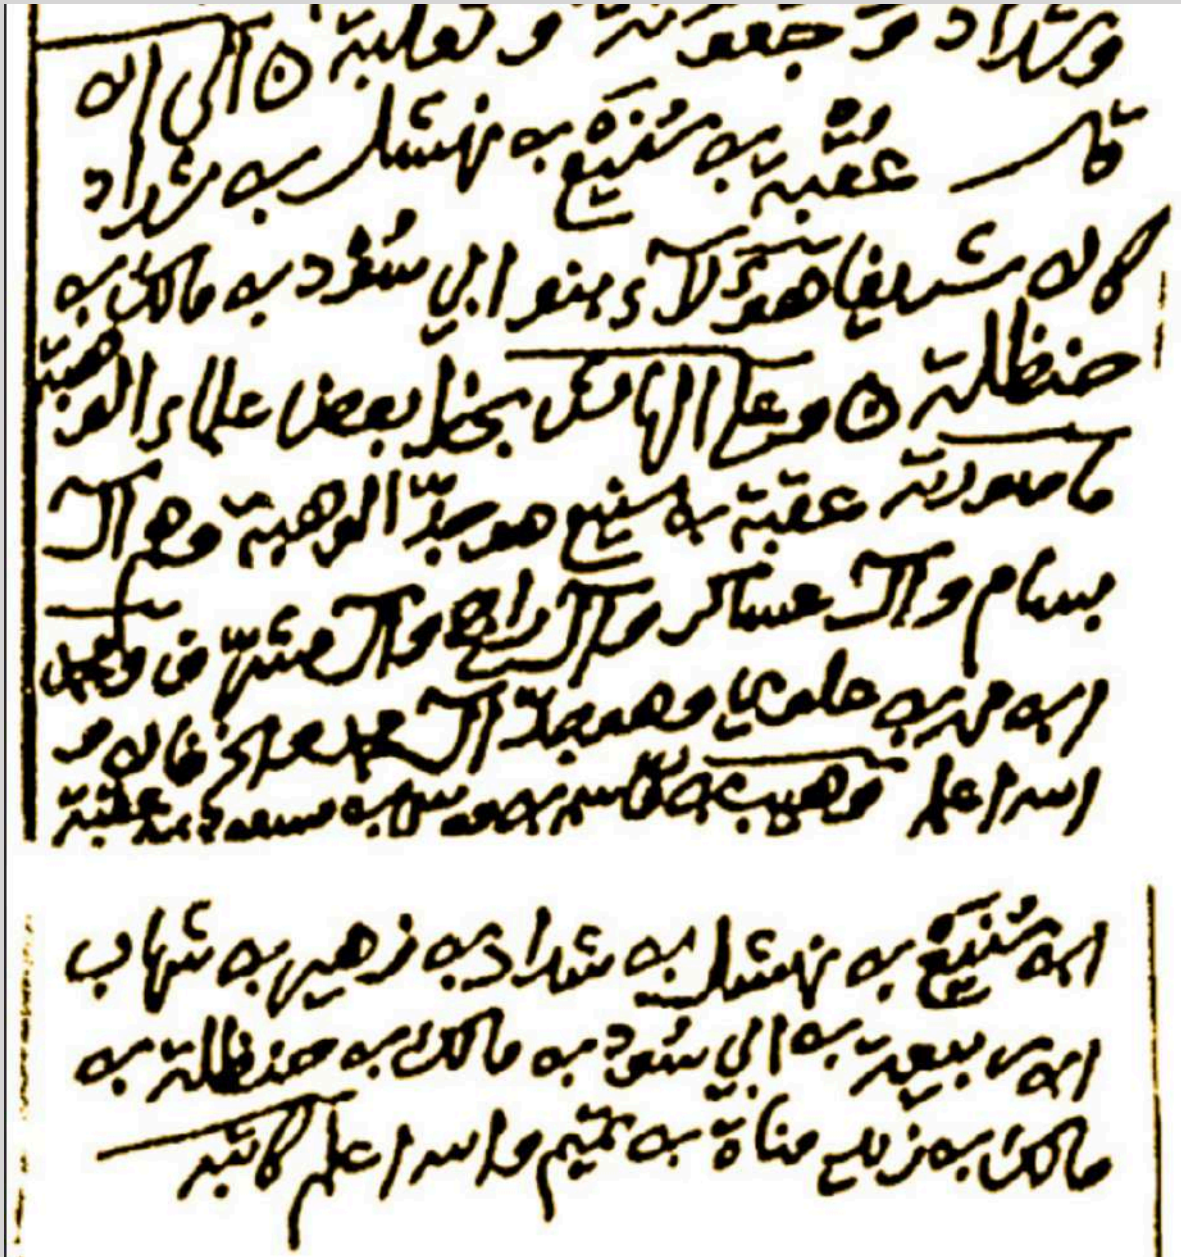 وشداد وجعونة وثعلبة ن الى ان
قال عقبة بن سنيع بن نهشل بن شداد
كان شريفا هؤلاء بنو ابي سُود بن مالك بن
حنظلة ن وعلى الهامش بخط بعض علماء الوهبة
ما صورته عقبة بن سنيع هو جدّ الوهبة وهم آل
بسام وآل عساكر وآل راجح وآل
ابن محمد بن علوي وهو جدّ آل محمد
اعلم وهيب بن قاسم بن موسى بن مسعود بن عقبة
ابن سُنَيع بن نهشل بن شداد بن زهير بن شهاب
ابن ربيعة بن ابي سُود بن مالك بن حنظلة بن
مالك بن زيد مناة بن تميم والله اعلم كاتبه